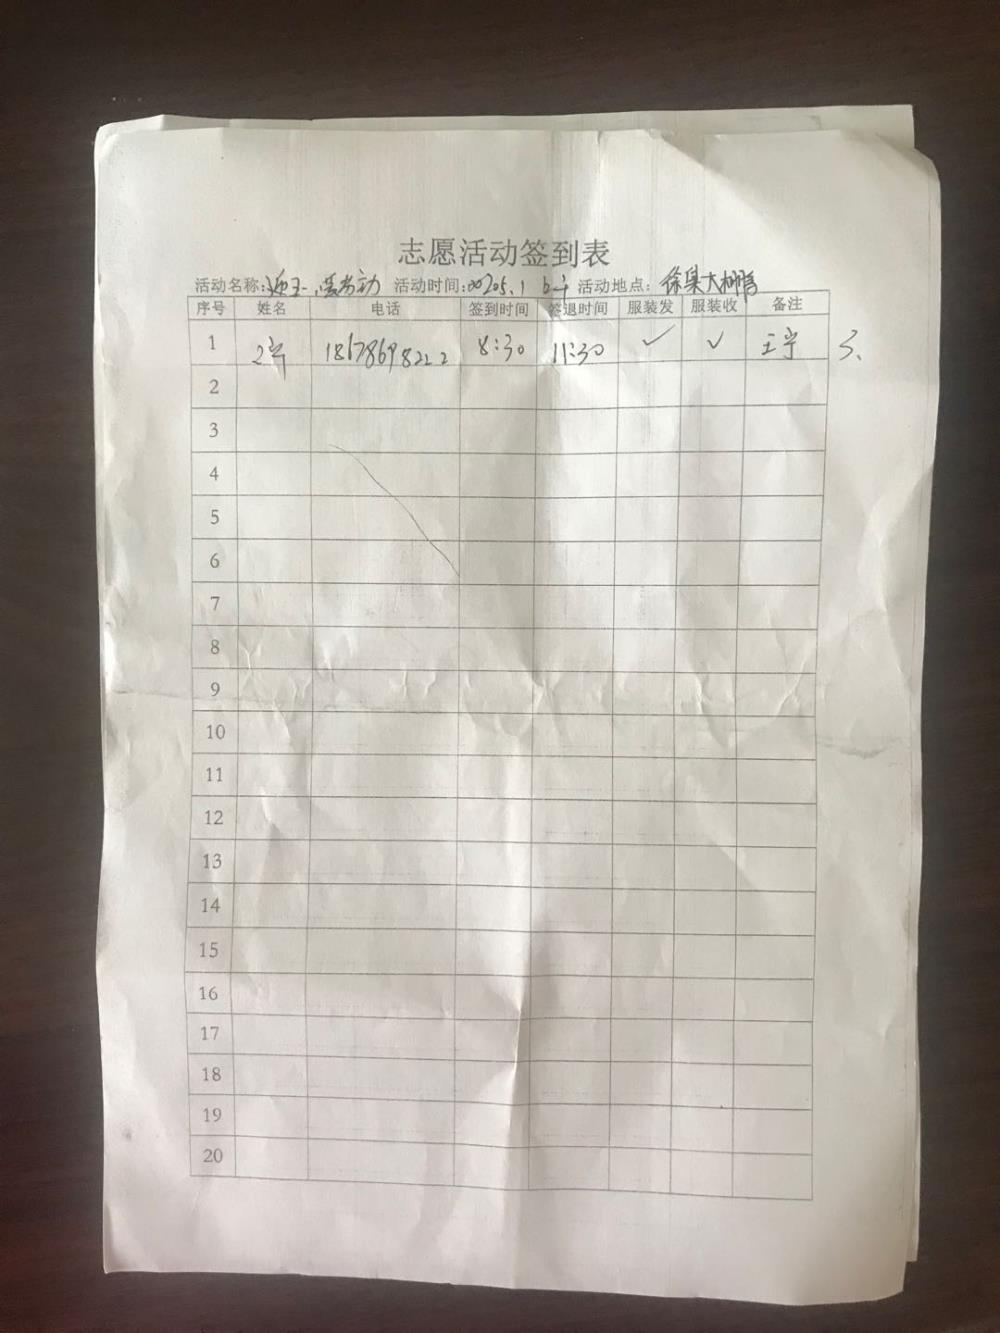 志愿活动签到表
活动名称:迎五一爱劳动 活动时间: 活动地点: 徐集大棚
序号 姓名 电话 签到时间 签退时间 服装发 服装收 备注
1 王宁 18678698222 8:30 11:30 ✓ ✓ 王宁 3、
2
3
4
5
6
7
8
9
10
11
12
13
14
15
16
17
18
19
20